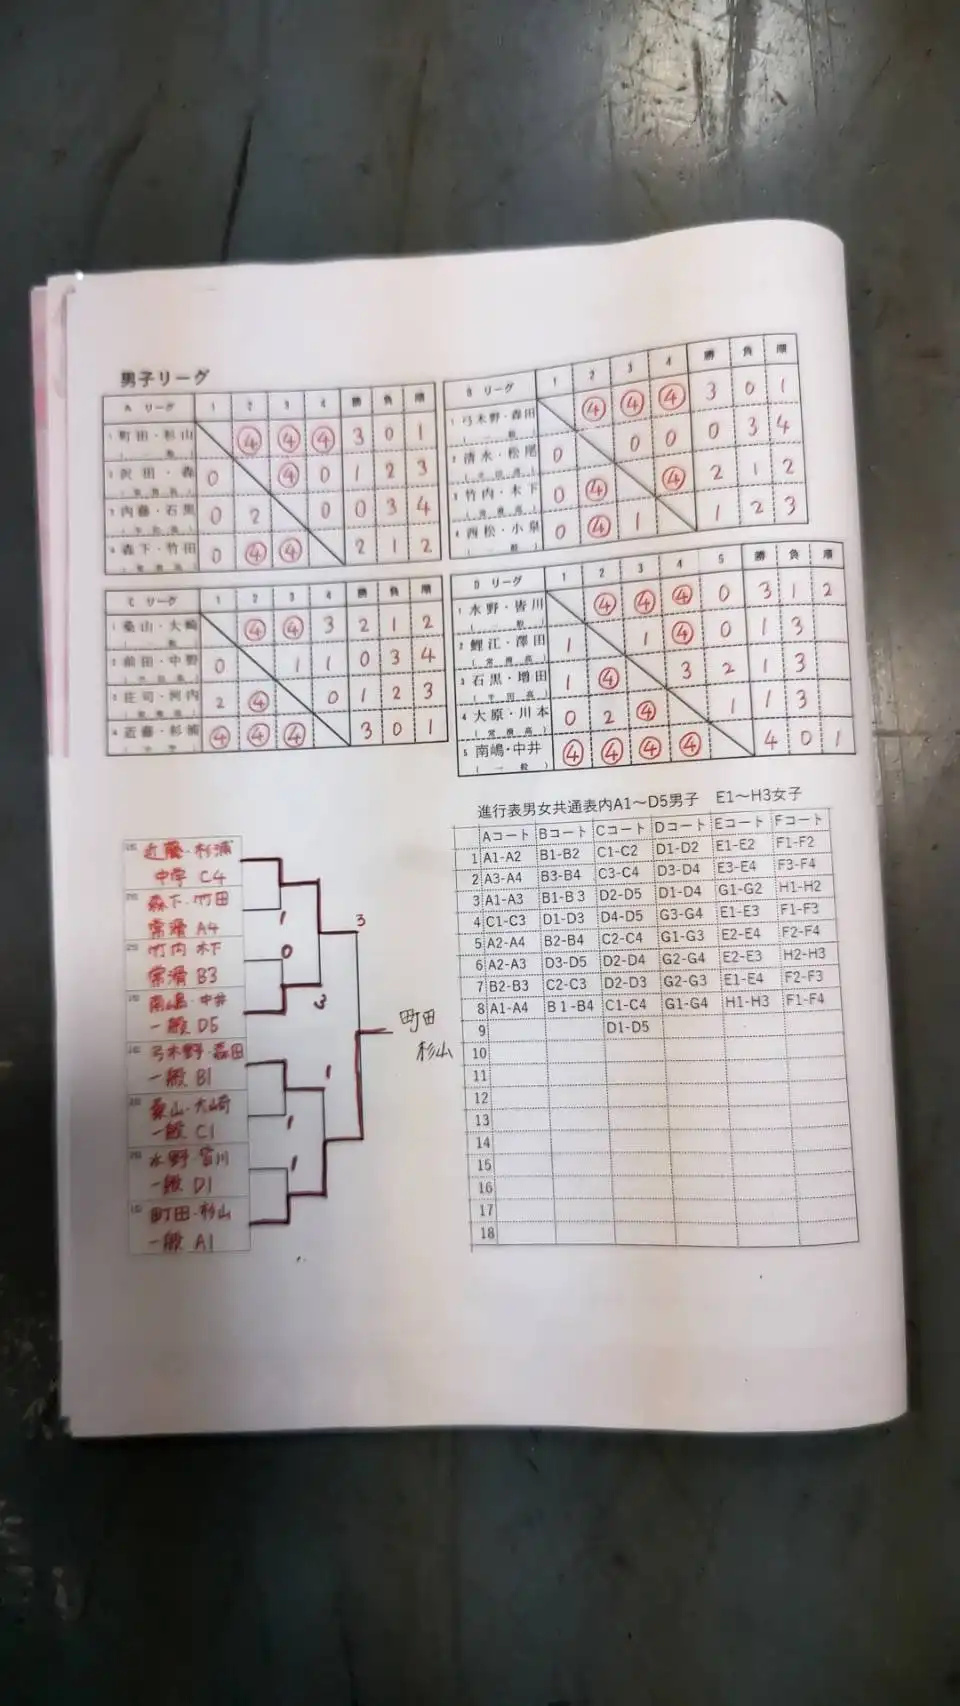 男子リーグ
A リーグ 1 2 3 4 勝 負 順
1 町田・杉山 ④ ④ ④ 3 0 1
(一般)
2 沢田・森 0 ④ 0 1 2 3
3 内藤・石黒 0 2 0 0 3 4
4 森下・竹田 0 ④ ④ 2 1 2
B リーグ 1 2 3 4 勝 負 順
1 弓木野・森田 ④ ④ ④ 3 0 1
(一般)
2 清水・松尾 0 0 0 0 3 4
(半田高)
3 竹内・木下 0 ④ ④ 2 1 2
(常滑高)
4 西松・小泉 0 ④ 1 1 2 3
(一般)
C リーグ 1 2 3 4 勝 負 順
1 桑山・大崎 ④ ④ 3 2 1 2
2 前田・中野 0 1 1 0 3 4
3 荘司・河内 2 ④ 0 1 2 3
4 近藤・杉浦 ④ ④ ④ 3 0 1
D リーグ 1 2 3 4 5 勝 負 順
1 水野・皆川 ④ ④ ④ 0 3 1 2
(一般)
2 鯉江・澤田 1 1 ④ 0 1 3
(常滑高)
3 石黒・増田 1 ④ 3 2 1 3
(半田高)
4 大原・川本 0 2 ④ 1 1 3
(常滑高)
5 南嶋・中井 ④ ④ ④ ④ 4 0 1
(一般)
近藤・杉浦
中学 C4
森下・竹田
常滑 A4
竹内 木下
常滑 B3
南嶋・中井
一般 D5
弓木野・森田
一般 B1
桑山・大崎
一般 C1
水野 皆川
一般 D1
町田・杉山
一般 A1
1
0
3
3
1
1
1
町田
杉山
進行表男女共通表内A1～D5男子 E1～H3女子
Aコート Bコート Cコート Dコート Eコート Fコート
1 A1-A2 B1-B2 C1-C2 D1-D2 E1-E2 F1-F2
2 A3-A4 B3-B4 C3-C4 D3-D4 E3-E4 F3-F4
3 A1-A3 B1-B3 D2-D5 D1-D4 G1-G2 H1-H2
4 C1-C3 D1-D3 D4-D5 G3-G4 E1-E3 F1-F3
5 A2-A4 B2-B4 C2-C4 G1-G3 E2-E4 F2-F4
6 A2-A3 D3-D5 D2-D4 G2-G4 E2-E3 H2-H3
7 B2-B3 C2-C3 D2-D3 G2-G3 E1-E4 F2-F3
8 A1-A4 B1-B4 C1-C4 G1-G4 H1-H3 F1-F4
9 D1-D5
10
11
12
13
14
15
16
17
18